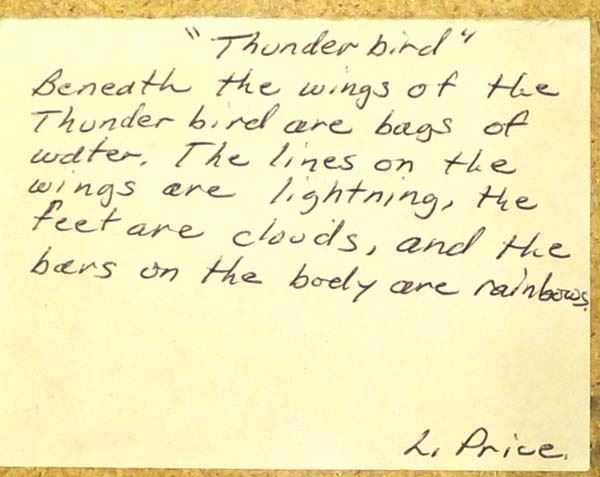 "Thunder bird"
Beneath the wings of the
Thunder bird are bags of
water. The lines on the
wings are lightning, the
feet are clouds, and the
bars on the body are rainbows.
L. Price.